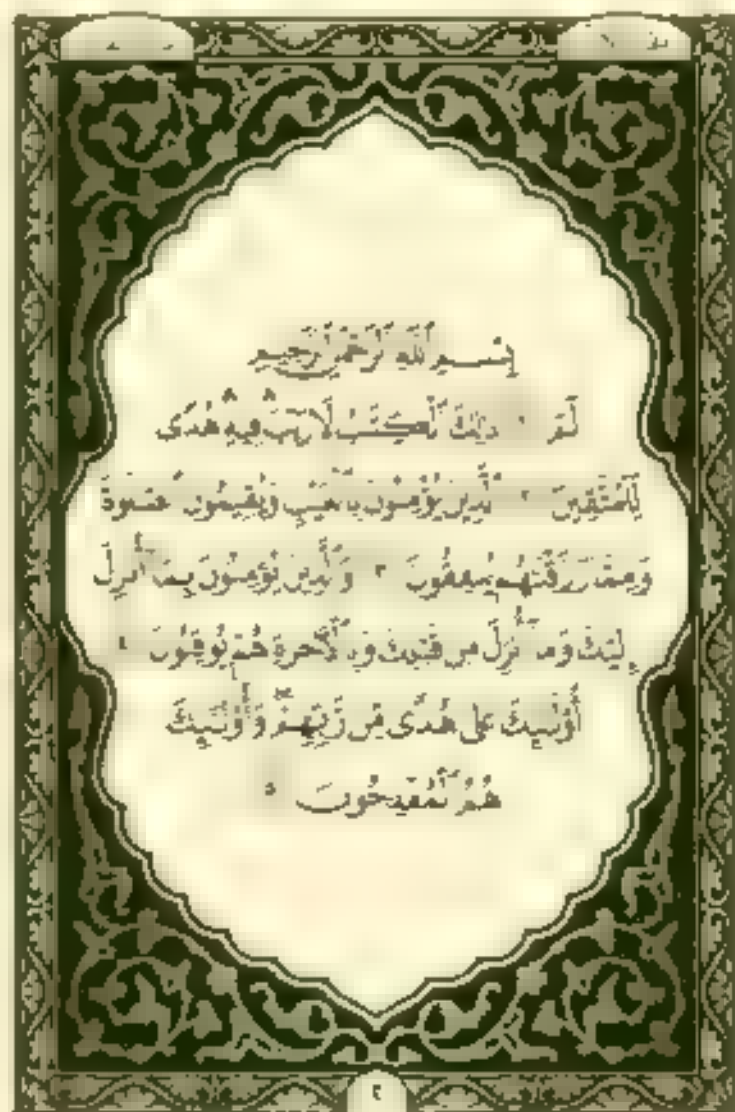 بِسْمِ ٱللَّهِ ٱلرَّحْمَٰنِ ٱلرَّحِيمِ
الٓمٓ ١ ذَٰلِكَ ٱلْكِتَٰبُ لَا رَيْبَ فِيهِ هُدًى
لِّلْمُتَّقِينَ ٢ ٱلَّذِينَ يُؤْمِنُونَ بِٱلْغَيْبِ وَيُقِيمُونَ ٱلصَّلَوٰةَ
وَمِمَّا رَزَقْنَٰهُمْ يُنفِقُونَ ٣ وَٱلَّذِينَ يُؤْمِنُونَ بِمَآ أُنزِلَ
إِلَيْكَ وَمَآ أُنزِلَ مِن قَبْلِكَ وَبِٱلْءَاخِرَةِ هُمْ يُوقِنُونَ ٤
أُو۟لَٰٓئِكَ عَلَىٰ هُدًى مِّن رَّبِّهِمْ وَأُو۟لَٰٓئِكَ
هُمُ ٱلْمُفْلِحُونَ ٥